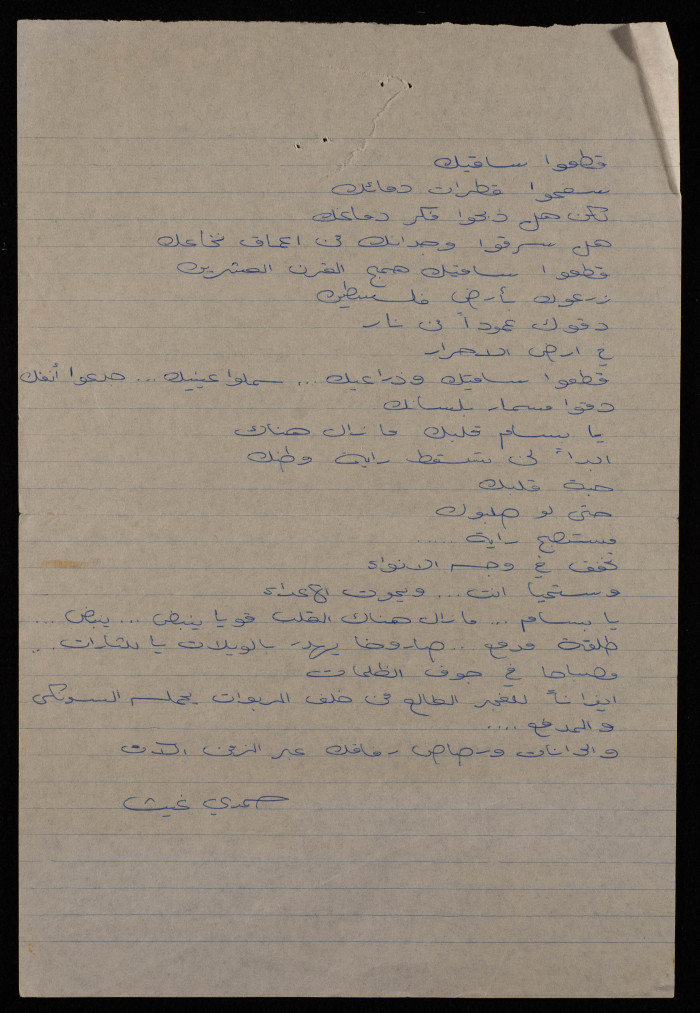 قطعوا ساقيك
سفحوا قطرات دمائك
لكن هل ذبحوا فكر دماغك
هل سرقوا وجدانك من اعماق نخاعك
قطعوا ساقيك همج القرن العشرين
زرعوك بأرض فلسطين
دقوك عموداً من نار
في ارض الاحرار
قطعوا ساقيك وذراعيك ... سملوا عينيك ... جدعوا أنفك
دقوا مسمار بلسانك
يا بسام قلبك ما زال هناك
ابداً لن تسقط راية وطنك
حبة قلبك
حتى لو صلبوك
فستصبح راية .....
تخفق في وجه الانواء
وستحيا انت ... ويموت الاعداء
يا بسام ... ما زال هناك القلب قويا ينبض ... ينبض ...
طلقة مدفع .. صاروخا يهدر بالويلات يا للثارات ..
وصباحا في جوف الظلمات
ايذاناً للفجر الطالع من خلف الربوات يحمله السونكى
والمدفع ....
والدانات ورصاص رفاقك عبر الزمن الآت
حمدي غيث